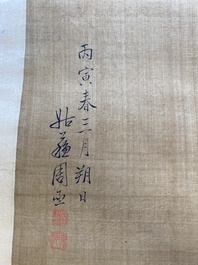 丙寅春三月朔日
姑蘇周丞